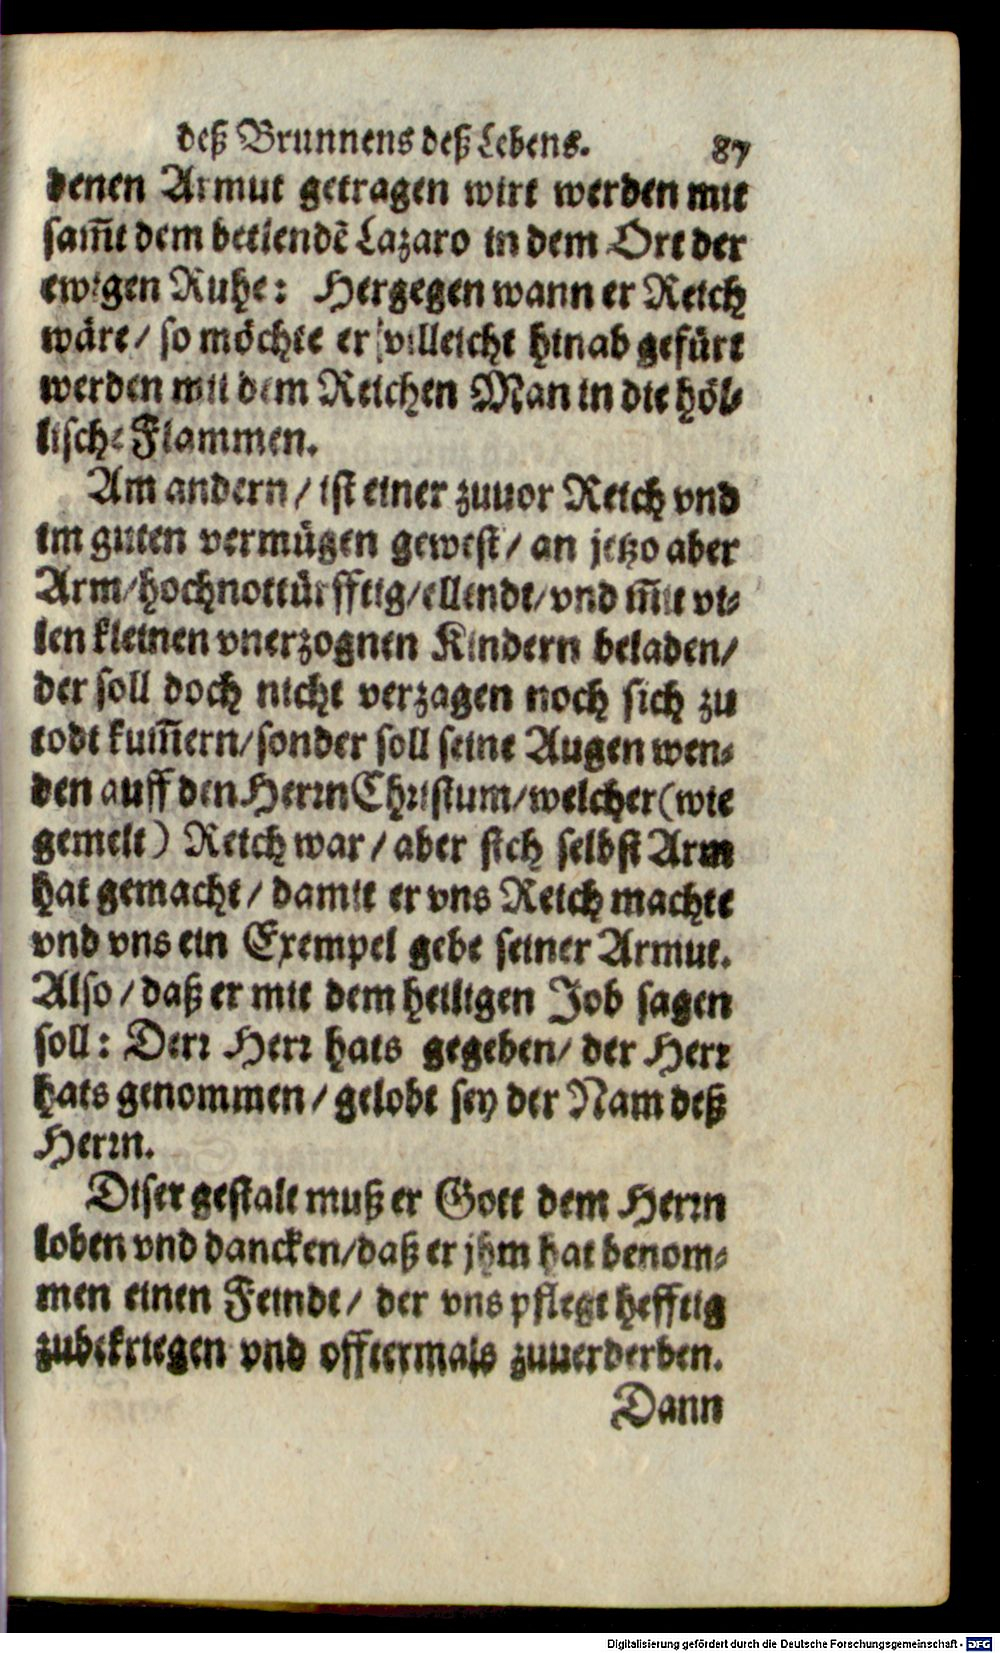 deß Brunnens deß Lebens. 87
denen Armut getragen wirt werden mit
sam̃t dem betlendẽ Lazaro in dem Ort der
ewigen Ruhe: Hergegen wann er Reich
wäre/ so möchte er villeicht hinab gefürt
werden mit dem Reichen Man in die höl-
lische Flammen.
Am andern/ ist einer zuuor Reich vnd
im guten vermügen gewest/ an jetzo aber
Arm/hochnottürfftig/ellendt/vnd mit vi-
len kleinen vnerzognen Kindern beladen/
der soll doch nicht verzagen noch sich zu
todt kum̃ern/sonder soll seine Augen wen-
den auff den Herrn Christum/welcher (wie
gemelt) Reich war/ aber sich selbst Arm
hat gemacht/ damit er vns Reich machte
vnd vns ein Exempel gebe seiner Armut.
Also/daß er mit dem heiligen Job sagen
soll: Derr Herr hats gegeben/ der Herr
hats genommen/ gelobt sey der Nam deß
Herrn.
Diser gestalt muß er Gott dem Herrn
loben vnd dancken/daß er jhm hat benom-
men einen Feindt/ der vns pflegt hefftig
zubekriegen vnd offtermals zuuerderben.
Dann
Digitalisierung gefördert durch die Deutsche Forschungsgemeinschaft - DFG